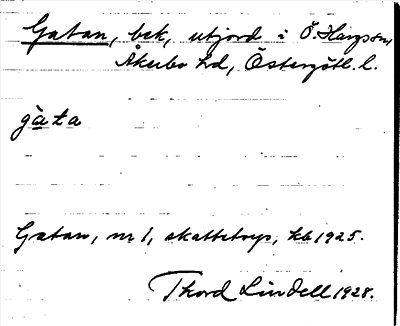 Gatan, bek, utjord i Ö. Harg sn,
Åkerbo hd, Östergötl. l.
gàta
Gatan, nr 1, skattetorp, kb 1925.
Thord Lindell 1928.